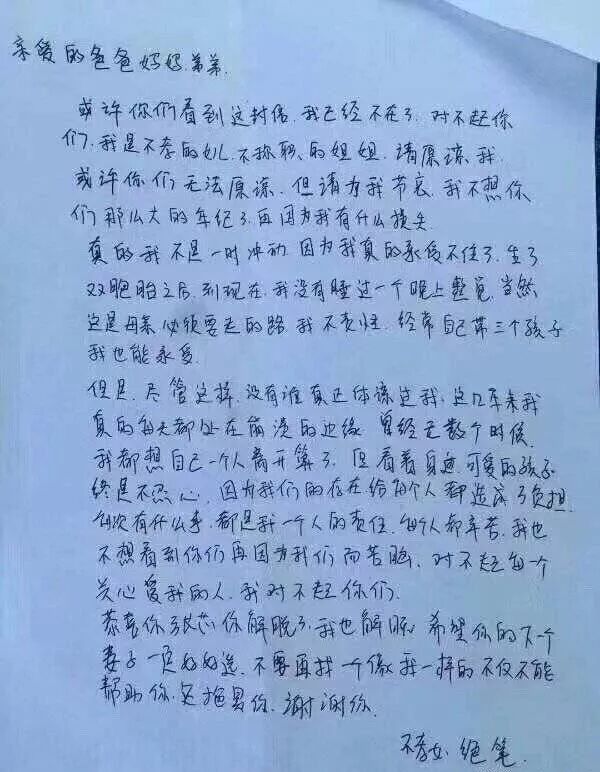 亲爱的爸爸妈妈.弟弟.
或许你们看到这封信.我已经不在了.对不起你
们.我是不孝的女儿.不称职、的姐姐.请原谅.我.
或许你们无法原谅.但请为我节哀.我不想你
们那么大的年纪了.再因为我有什么损失
真的我不是一时冲动.因为我真的承受不住了.生了
双胞胎之后.到现在.我没有睡过一个晚上整觉.当然
这是母亲必须要走的路.我不责怪.经常自己带三个孩子
我也能承受.
但是.尽管这样.没有谁真正体谅过我.这几年来我
真的每天都处在崩溃的边缘.曾经无数个时候.
我都想自己一个人离开算了.但看着身边可爱的孩子
终是不忍心.因为我们的存在给每个人都造成了负担.
每次有什么事.都是我一个人的责任.每个人都辛苦.我也
不想看到你们再因为我们而苦恼.对不起每一个
关心爱我的人.我对不起你们.
恭喜你了 你解脱了.我也解脱.希望你的下一个
妻子一定好好选.不要再找一个像我一样的不仅不能
帮助你.还拖累你.谢谢你.
不孝女.绝笔.